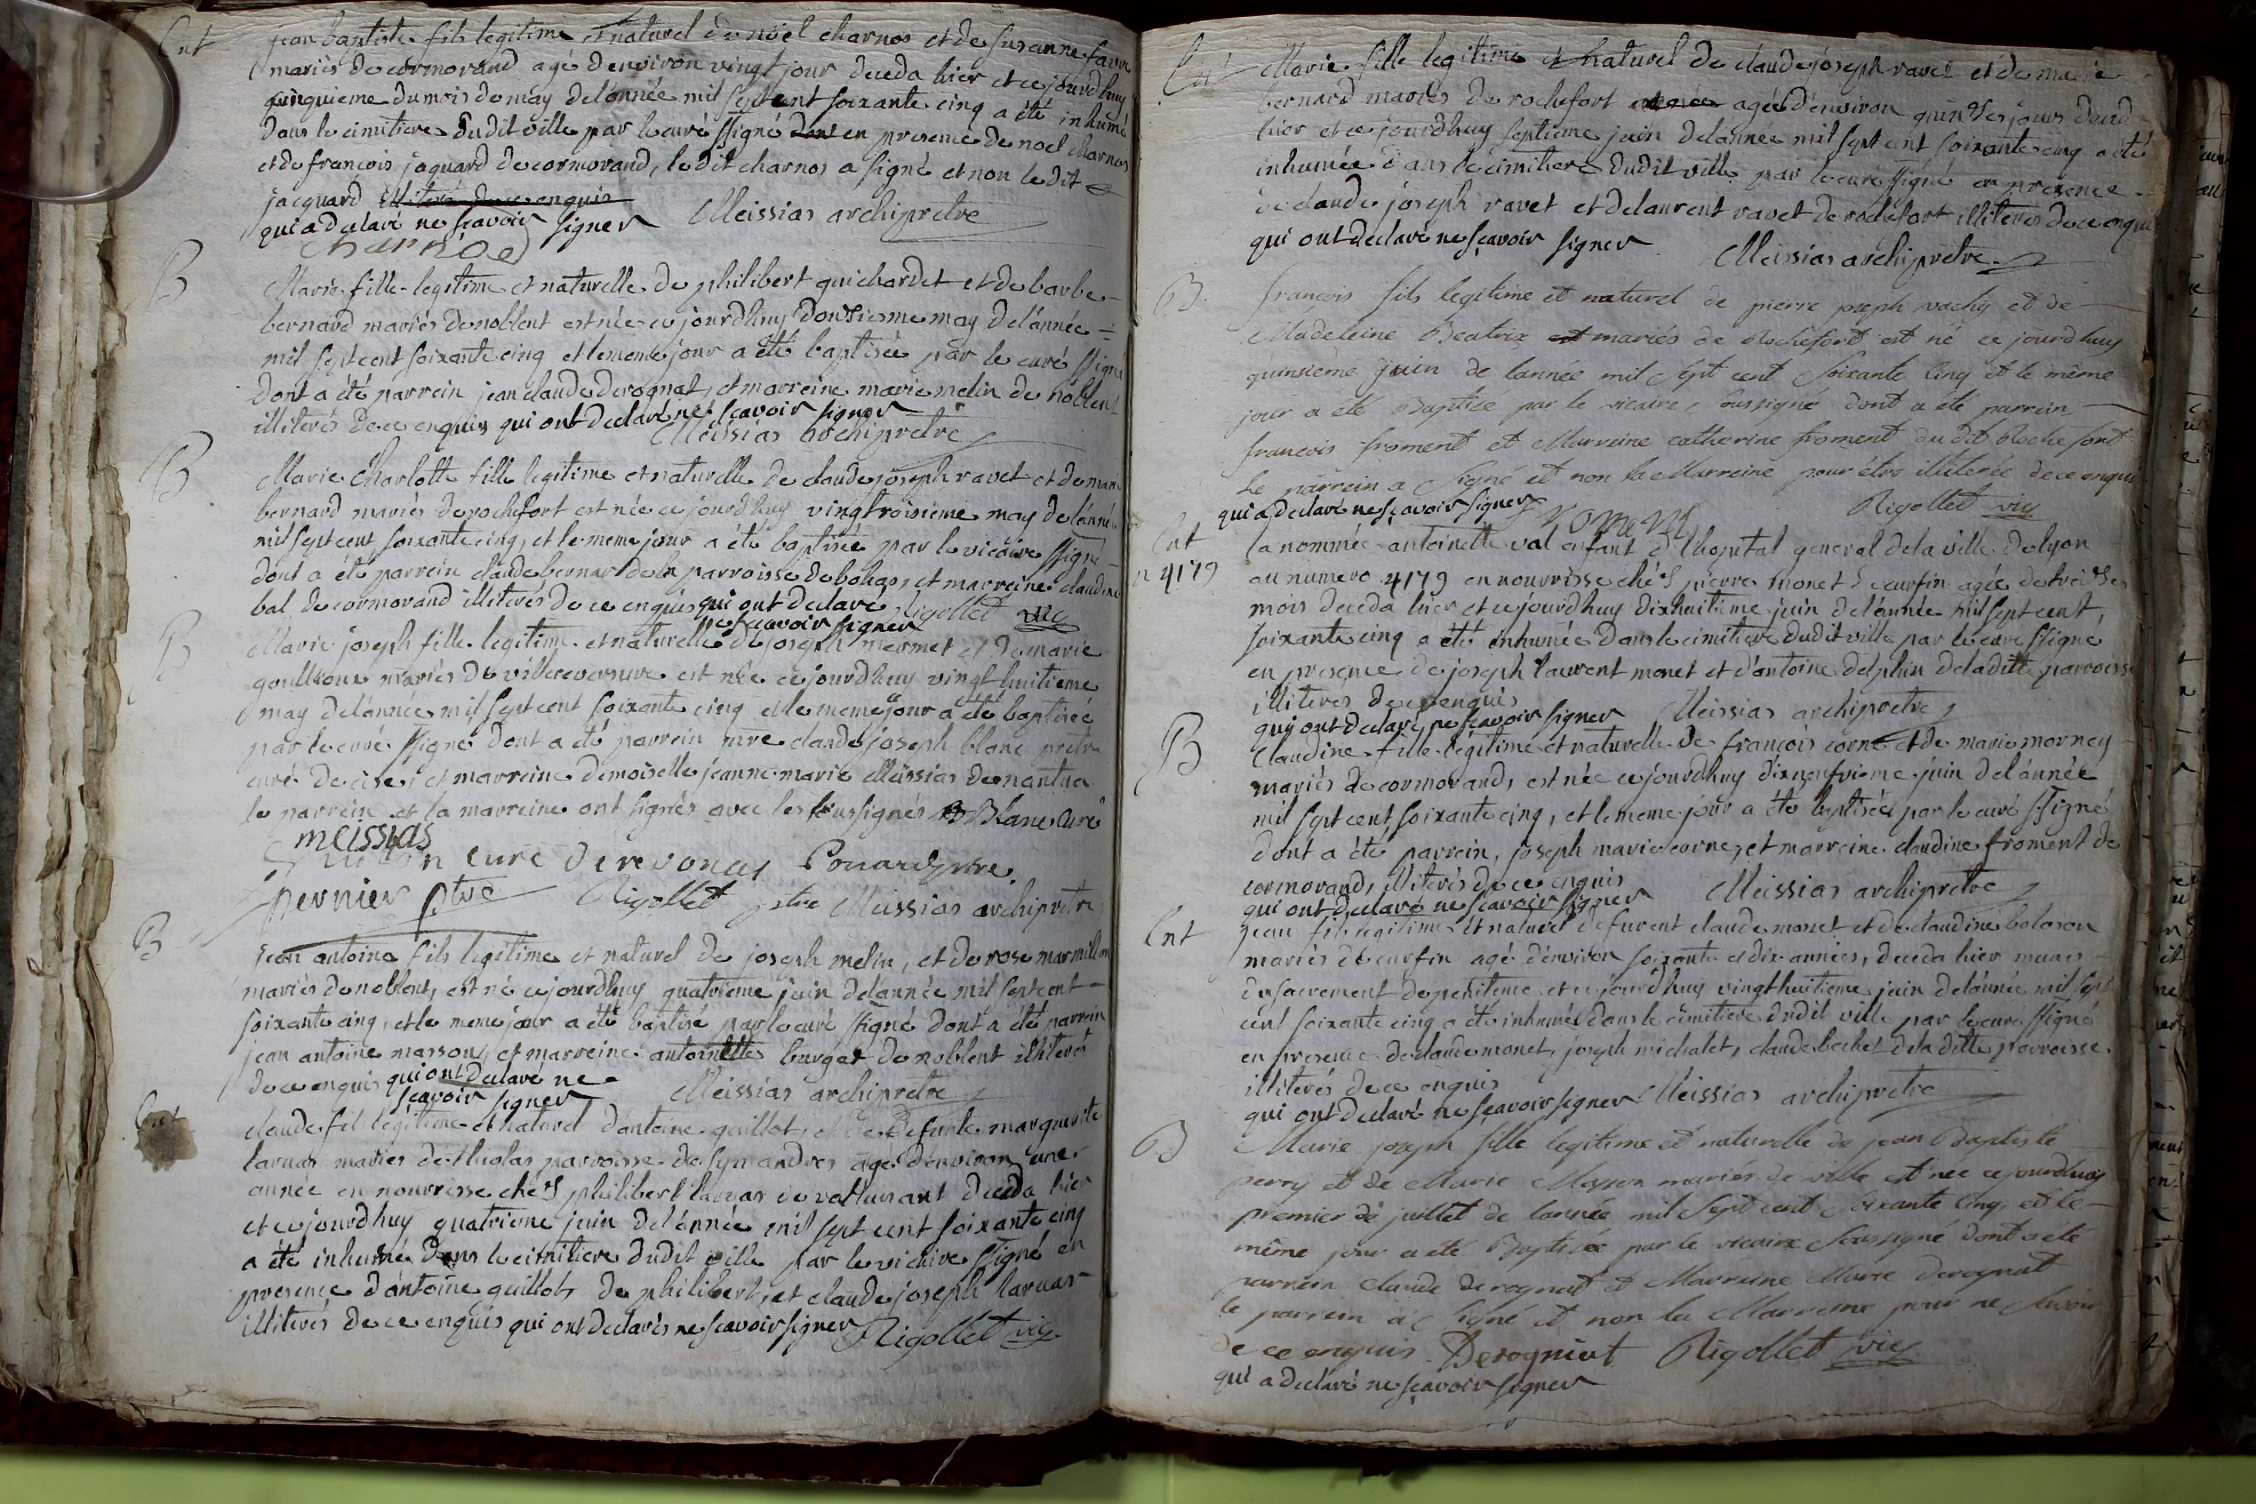 Ent
jean baptiste fils legitime et naturel de noel charnos et de susanne favre
mariés de cormorand agé denviron vingt jour deceda hier et cejourdhuy
quinquieme du mois de may delánnée mil sept cent soixante cinq a été inhumé
dans le cimitiere dudit ville par le curé ssigné dont en presence de noel charnos
et de françois jaquard de cormorand, le dit charnos a signé et non le dit
jacquard illiteré de ce enquis
qui a declaré ne sçavoir signer Meissias archipretre
charnos
B
Marie fille legitime et naturelle de philibert guichardet et de barbe
bernard mariés de noblent est née cejourdhuy douzieme may delánnée
mil sept cent soixante cinq et lememe jour a été baptisée par le curé ssigné
dont a été parrein jean claude derognat, et marreine marie melin de noblent
illiterés de ce enquis qui ont declaré ne sçavoir signer
Meissias archipretre
B
Marie charlotte fille legitime et naturelle de claude joseph ravet et de marie
bernard mariés de rochefort est née cejourdhuy vingtroisieme may delánnée
mil sept cent soixante cinq, et le meme jour a été baptisée par le vicaire ssigné
dont a été parrein claude bernard de la parroisse de bohas, et marreine claudine
bal de cormorand illiterés de ce enquis qui ont declaré Rigollet vic
ne sçavoir signer
B
Marie joseph fille legitime et naturelle de joseph mermet et de marie
mariés de villereversure est née cejourdhuy vingt huitieme
may delánnée mil sept cent soixante cinq et le meme jour a été baptisée
par le curé ssigné dont a été parrein mre claude joseph blanc pretre
curé de cise, et marreine demoiselle jeanne marie Meissias de nantua
le parrein et la marreine ont signés avec les soussignés Blanc curé
meissias
curé de revonas
pernier ptre Rigollet ptre Meissias archipretre
B
Jean antoine fils legitime et naturel de joseph melin, et de rose marmillon
mariés de noblent, est né cejourdhuy quatrieme juin delannée mil sept cent
soixante cinq, et le meme jour a été baptisé par le curé ssigné dont a été parrein
jean antoine masson, et marreine antoinette burget de noblent illiterés
de ce enquis qui ont declaré ne
sçavoir signer Meissias archipretre
Ent
claude fils legitime et naturel dántoine guillot, et de defunte marguerite
larvas mariés de parroisse de symandres agé denviron une
année en nourrisse chez philibert larvas de deceda hier
et cejourdhuy quatrieme juin delánnée mil sept cent soixante cinq
a été inhumé dans le cimitiere dudit ville par le vicaire ssigné en
presence dántoine guillot, de philibert, et claude joseph larvas
illiterés de ce enquis qui ont declarés ne sçavoir signer Rigollet vic
Ent
Marie fille legitime et naturel de claude joseph ravet et de marie
bernard mariés de rochefort agée dénviron quinzes jours deced
hier et cejourdhuy septieme juin delannée mil sept cent soixante cinq a été
inhumée dans le cimitiere dudit ville par le curé ssigné en presence
de claude joseph ravet et de laurent ravet de rochefort illiterés de ce enquis
qui ont declaré ne sçavoir signer Meissias archipretre
B.
françois fils legitime et naturel de pierre joseph vachy et de
Madeleine Beatrix mariés de Rochefort est né ce jourdhuy
quinsieme juin de lannée mil sept cent soixante cinq et le même
jour a été Baptisé par le vicaire soussigné dont a été parrein
françois froment et Marreine catherine froment du dit Rochefort
Le parrein a signé et non la Marreine pour être illiterée de ce enquis
qui a declaré ne sçavoir signer froment Rigollet vic
Ent
n 4179
la nommée antoinette val enfant de lhopital general de la ville de lyon
au numero 4179 en nourrisse chéz pierre monet de curfin agée de treizes
mois deceda hier et cejourdhuy dixhuitieme juin delánnée mil sept cent,
soixante cinq a été inhumée dans le cimitiere dudit ville par le curé ssigné
en presence de joseph laurent monet et dántoine delphin de la ditte parroisse
illiterés de ce enquis
qui ont declaré ne sçavoir signer Meissias archipretre
B
Claudine fille legitime et naturelle de françois corne et de marie mornay
mariés de cormorand, est née cejourdhuy dixneufvieme juin delánnée
mil sept cent soixante cinq, et le meme jour a été baptisée par le curé ssigné
dont a été parrein, joseph marie corne, et marreine claudine froment de
cormorand, illiterés de ce enquis
qui ont declaré ne sçavoir signer Meissias archipretre
Ent
jean fils legitime et naturel de furent claude monet et de claudine boloson
mariés de curfin agé dénviron soixante et dix années, deceda hier munis
du sacrement de penitence et cejourdhuy vingthuitieme juin delánnée mil sept
cent soixante cinq a été inhumé dans le cimitiere dudit ville par le curé ssigné
en presence de claude monet, joseph michalet, claude bochet de la ditte parroisse.
illiterés de ce enquis
qui ont declaré ne sçavoir signer Meissias archipretre
B
Marie joseph fille legitime et naturelle de jean Baptiste
perry et de Marie Masson mariés de ville est née cejourdhuy
premier de juillet de lannée mil sept cent soixante cinq, et le
même jour a été Baptisée par le vicaire soussigné dont a été
parrein claude derognat et Marreine Marie derognat
le parrein a signé et non la Marreine pour ne savoir
de ce enquis Derogniat Rigollet vic
qui a declaré ne sçavoir signer